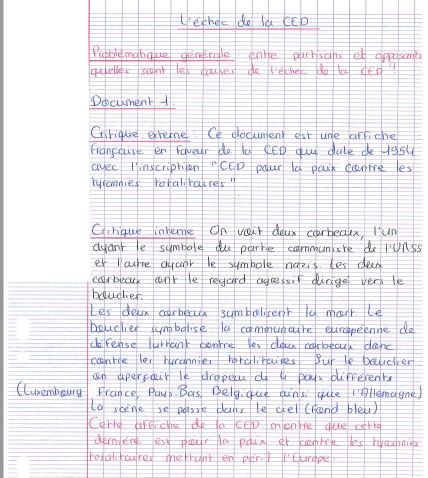 L'échec de la CED
Problématique générale : entre partisans et opposants
quelles sont les causes de l'échec de la CED ?
Document 1.
Critique externe : Ce document est une affiche
française en faveur de la CED qui date de 1954
avec l'inscription "CED pour la paix contre les
tyrannies totalitaires"
Critique interne On voit deux corbeaux, l'un
ayant le symbole du partie communiste de l'URSS
et l'autre ayant le symbole nazis. Les deux
corbeaux ont le regard agressif dirigé vers le
bouclier.
Les deux corbeaux symbolisent la mort Le
bouclier symbolise la communauté européenne de
défense luttant contre les deux corbeaux donc
contre les tyrannies totalitaires Sur le bouclier
on aperçoit le drapeau de 4 pays différents
(Luxembourg, France, Pays Bas, Belgique ainsi que l'Allemagne)
La scène se passe dans le ciel (fond bleu)
Cette affiche de la CED montre que cette
dernière est pour la paix et contre les tyrannies
totalitaires mettant en péril l'Europe